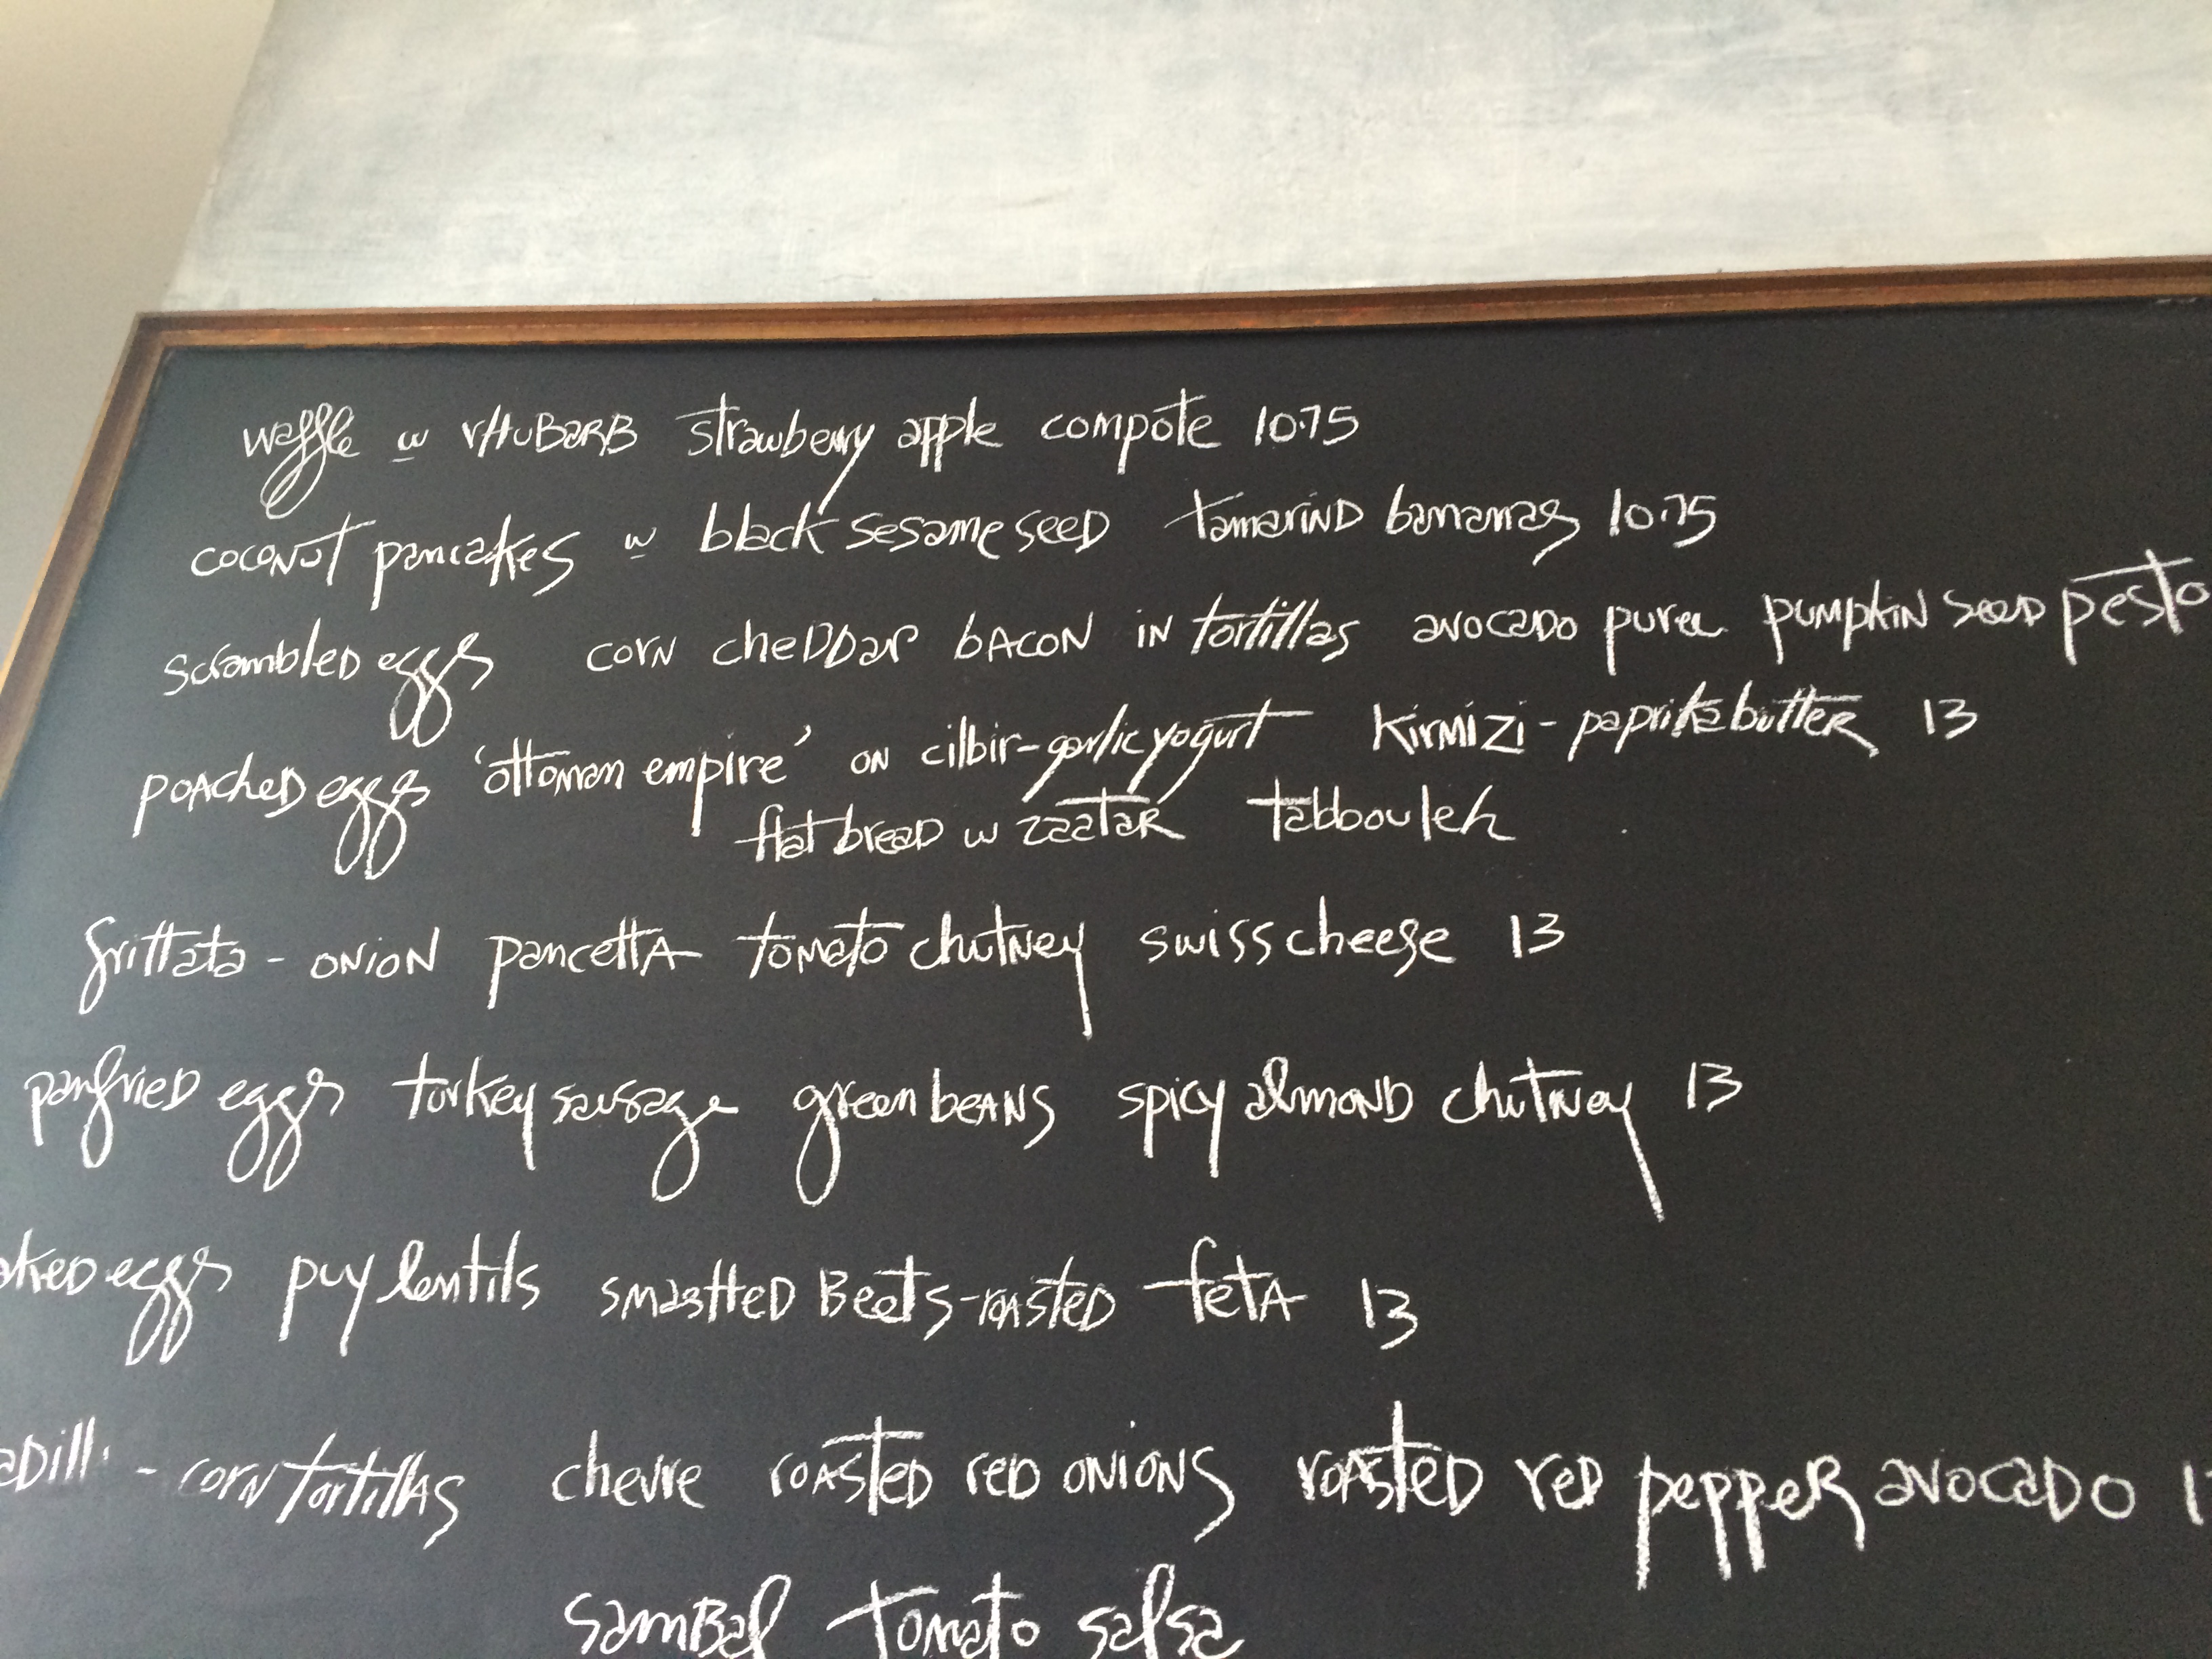 waffle w rHuBarB strawberry apple compote 10.75
coconut pancakes w black sesame seed tamarind bananas 10.75
scrambled eggs corn cheddar bacon in tortillas avocado puree pumpkin seed pesto
poached eggs 'ottoman empire' on cilbir-garlic yogurt Kirmizi-paprika butter 13
flat bread w zaatar tabbouleh
frittata - onion pancetta tomato chutney swiss cheese 13
panfried eggs turkey sausage green beans spicy almond chutney 13
eggs puy lentils smashed Beets-roasted feta 13
- corn tortillas chevre roasted red onions roasted red pepper avocado
sambal tomato salsa